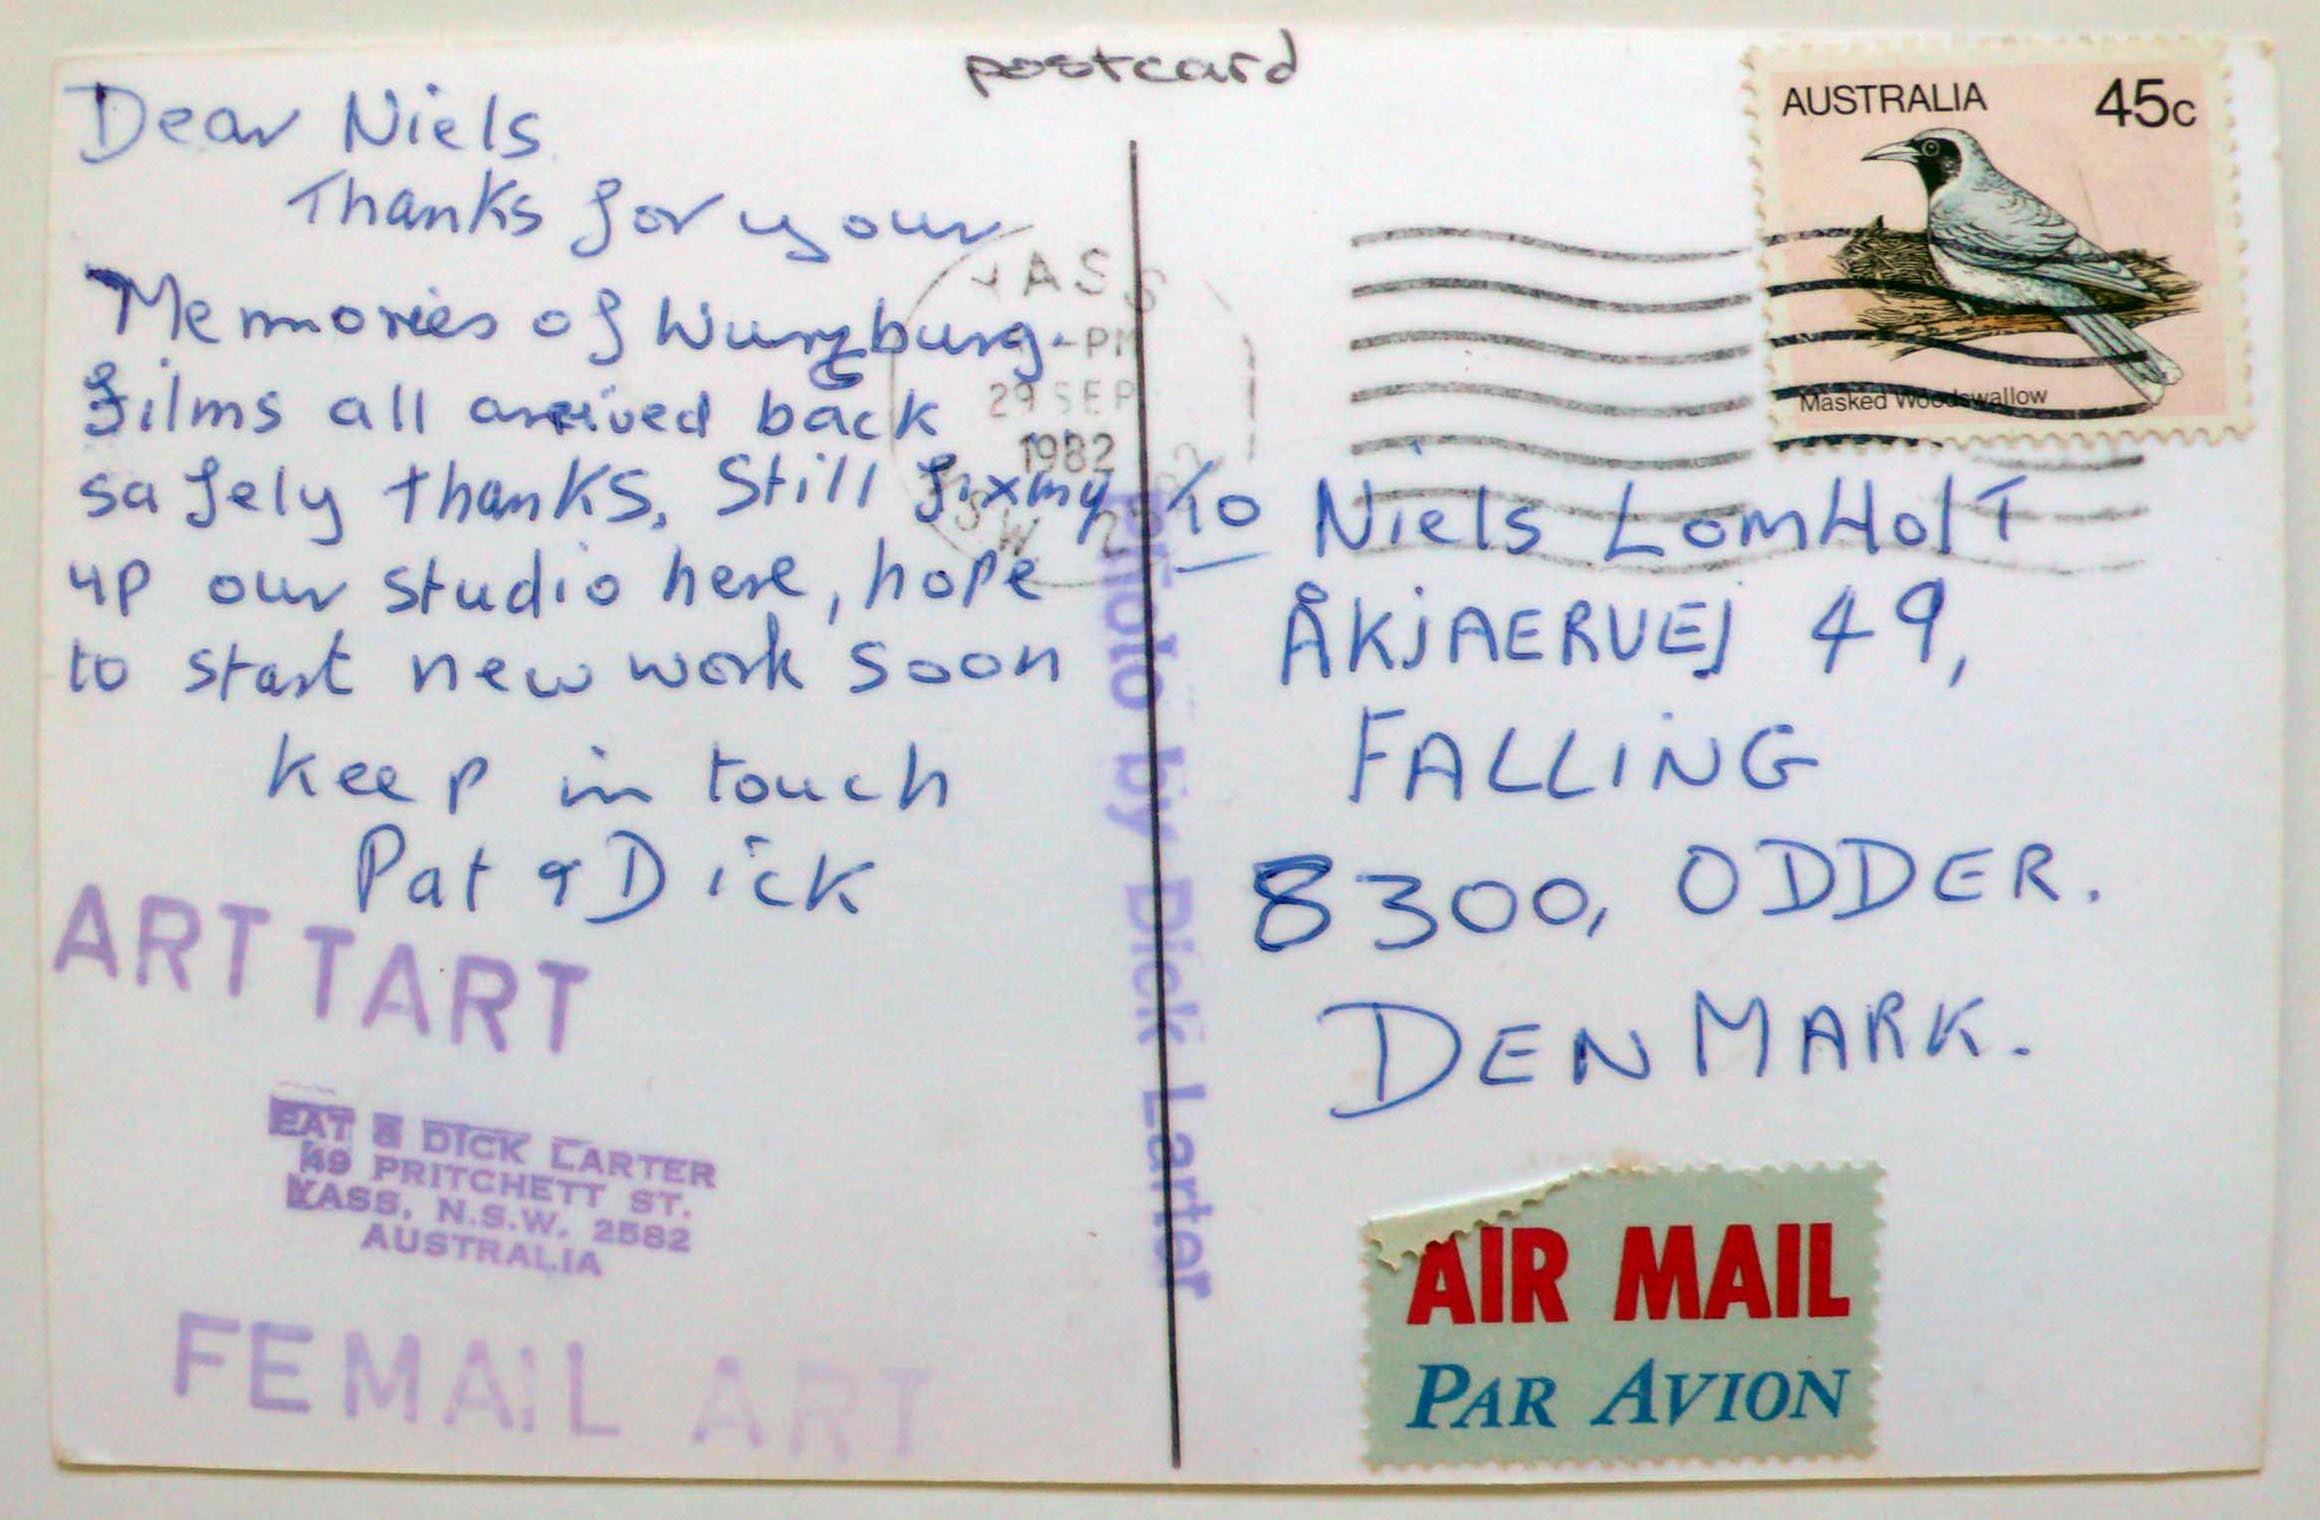 postcard
Dear Niels
Thanks for your
Memories of Wurzburg.
films all arrived back
safely thanks. Still fixing
up our studio here, hope
to start new work soon
keep in touch
Pat & Dick
ART TART
PAT & DICK LARTER
49 PRITCHETT ST.
YASS, N.S.W. 2582
AUSTRALIA
FEMAIL ART
Photo by Dick Larter
YASS
-PM
29 SEP
1982
AUSTRALIA 45c
Masked Woodswallow
To Niels LomHolT
ÅKJAERVEJ 49,
FALLING
8300, ODDER.
DENMARK.
AIR MAIL
PAR AVION